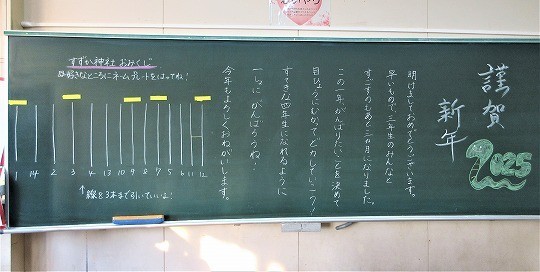 謹賀
新年
2025
明けましておめでとうございます。
早いもので三年生のみんなと
すごすのもあと三カ月になりました。
この一年、がんばりたいことを決めて
目ひょうにむかってどりょくしていこう!
すてきな四年生になれるように
一しょにがんばろうね!
今年もよろしくおねがいします。
すずか神社 おみくじ
好きなところにネームプレートをはってね!
1 14 2 3 4 13 10 9 7 5 6 11 12
↑線を3本まで引いていいよ!